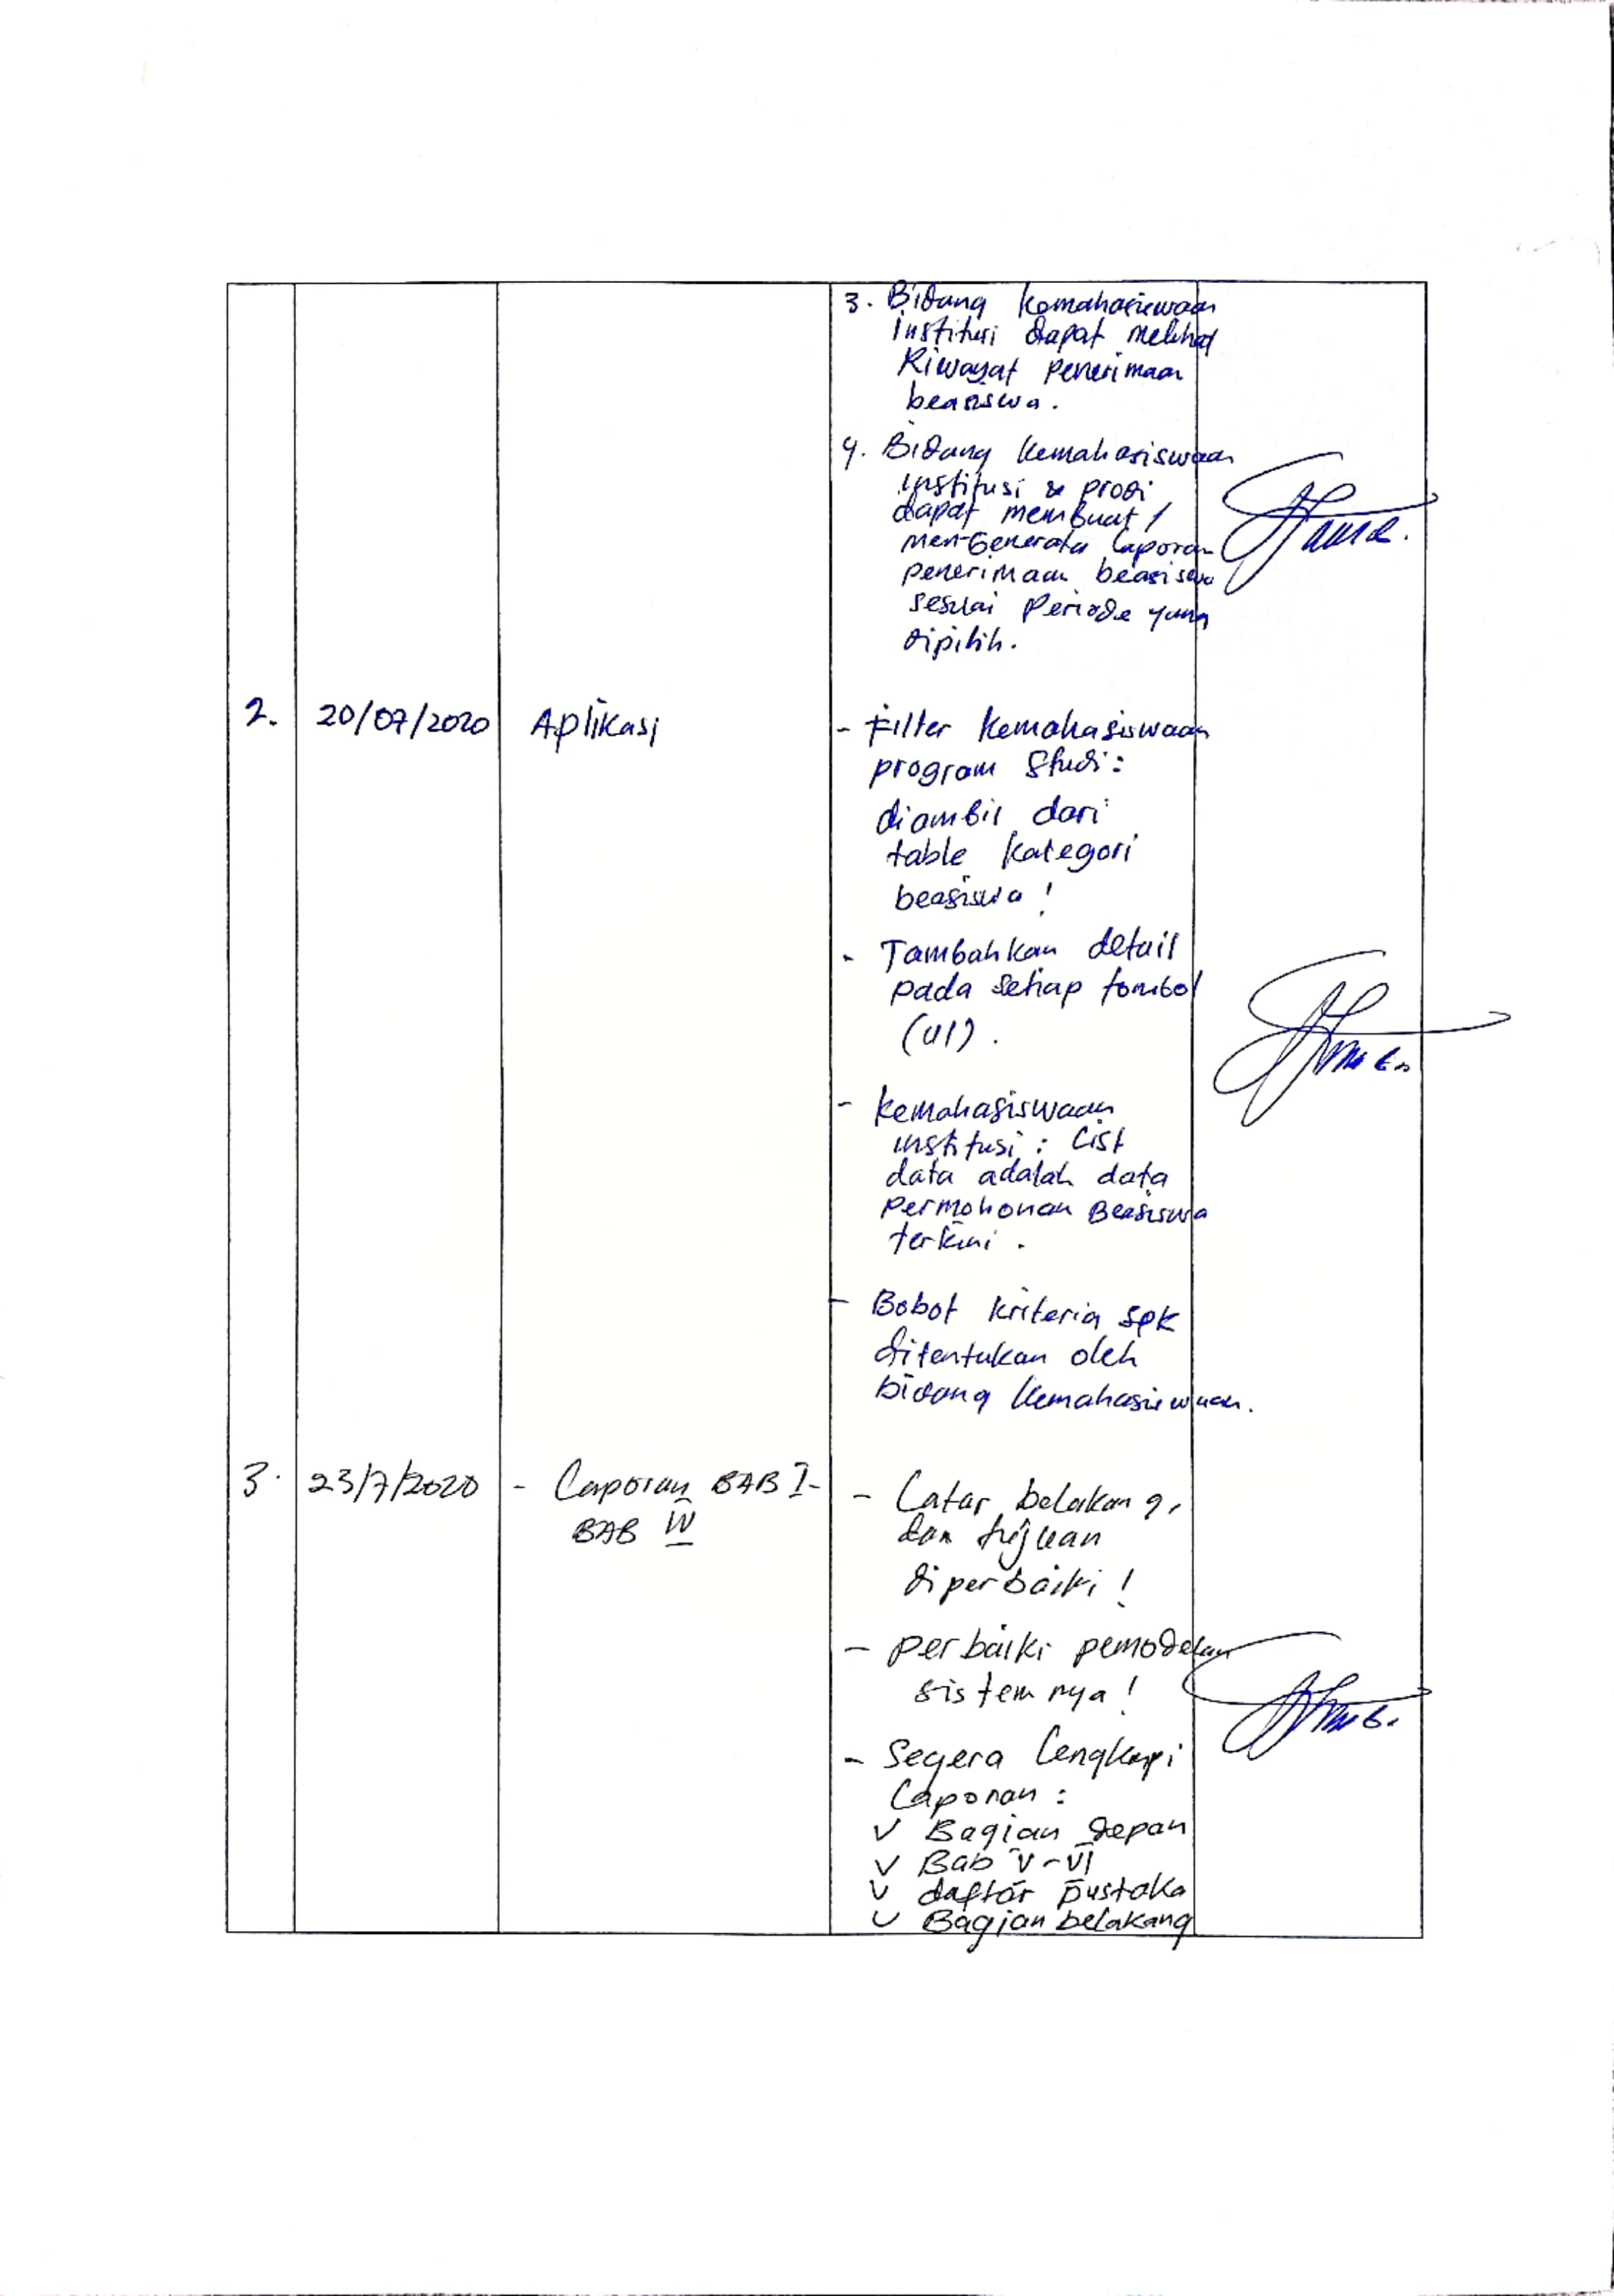 3. Bidang Kemahasiswaan
institusi dapat melihat
Riwayat penerimaan
beasiswa.
4. Bidang Kemahasiswaan
institusi & prodi
dapat membuat /
men-Generate laporan
penerimaan beasiswa
sesuai periode yang
dipilih.
2. 20/07/2020 Aplikasi
- Filter Kemahasiswaan
program Studi:
diambil dari
table kategori
beasiswa !
- Tambahkan detail
pada setiap tombol
(UI).
- Kemahasiswaan
institusi : List
data adalah data
Permohonan Beasiswa
terkini .
- Bobot kriteria SPK
ditentukan oleh
bidang Kemahasiswaan.
3. 23/7/2020 - Laporan BAB I-
BAB IV
- Latar belakang,
dan tujuan
diperbaiki !
- perbaiki pemodelan
sistemnya !
- Segera lengkapi
Laporan :
V Bagian depan
V Bab V-VI
V daftar pustaka
V Bagian belakang